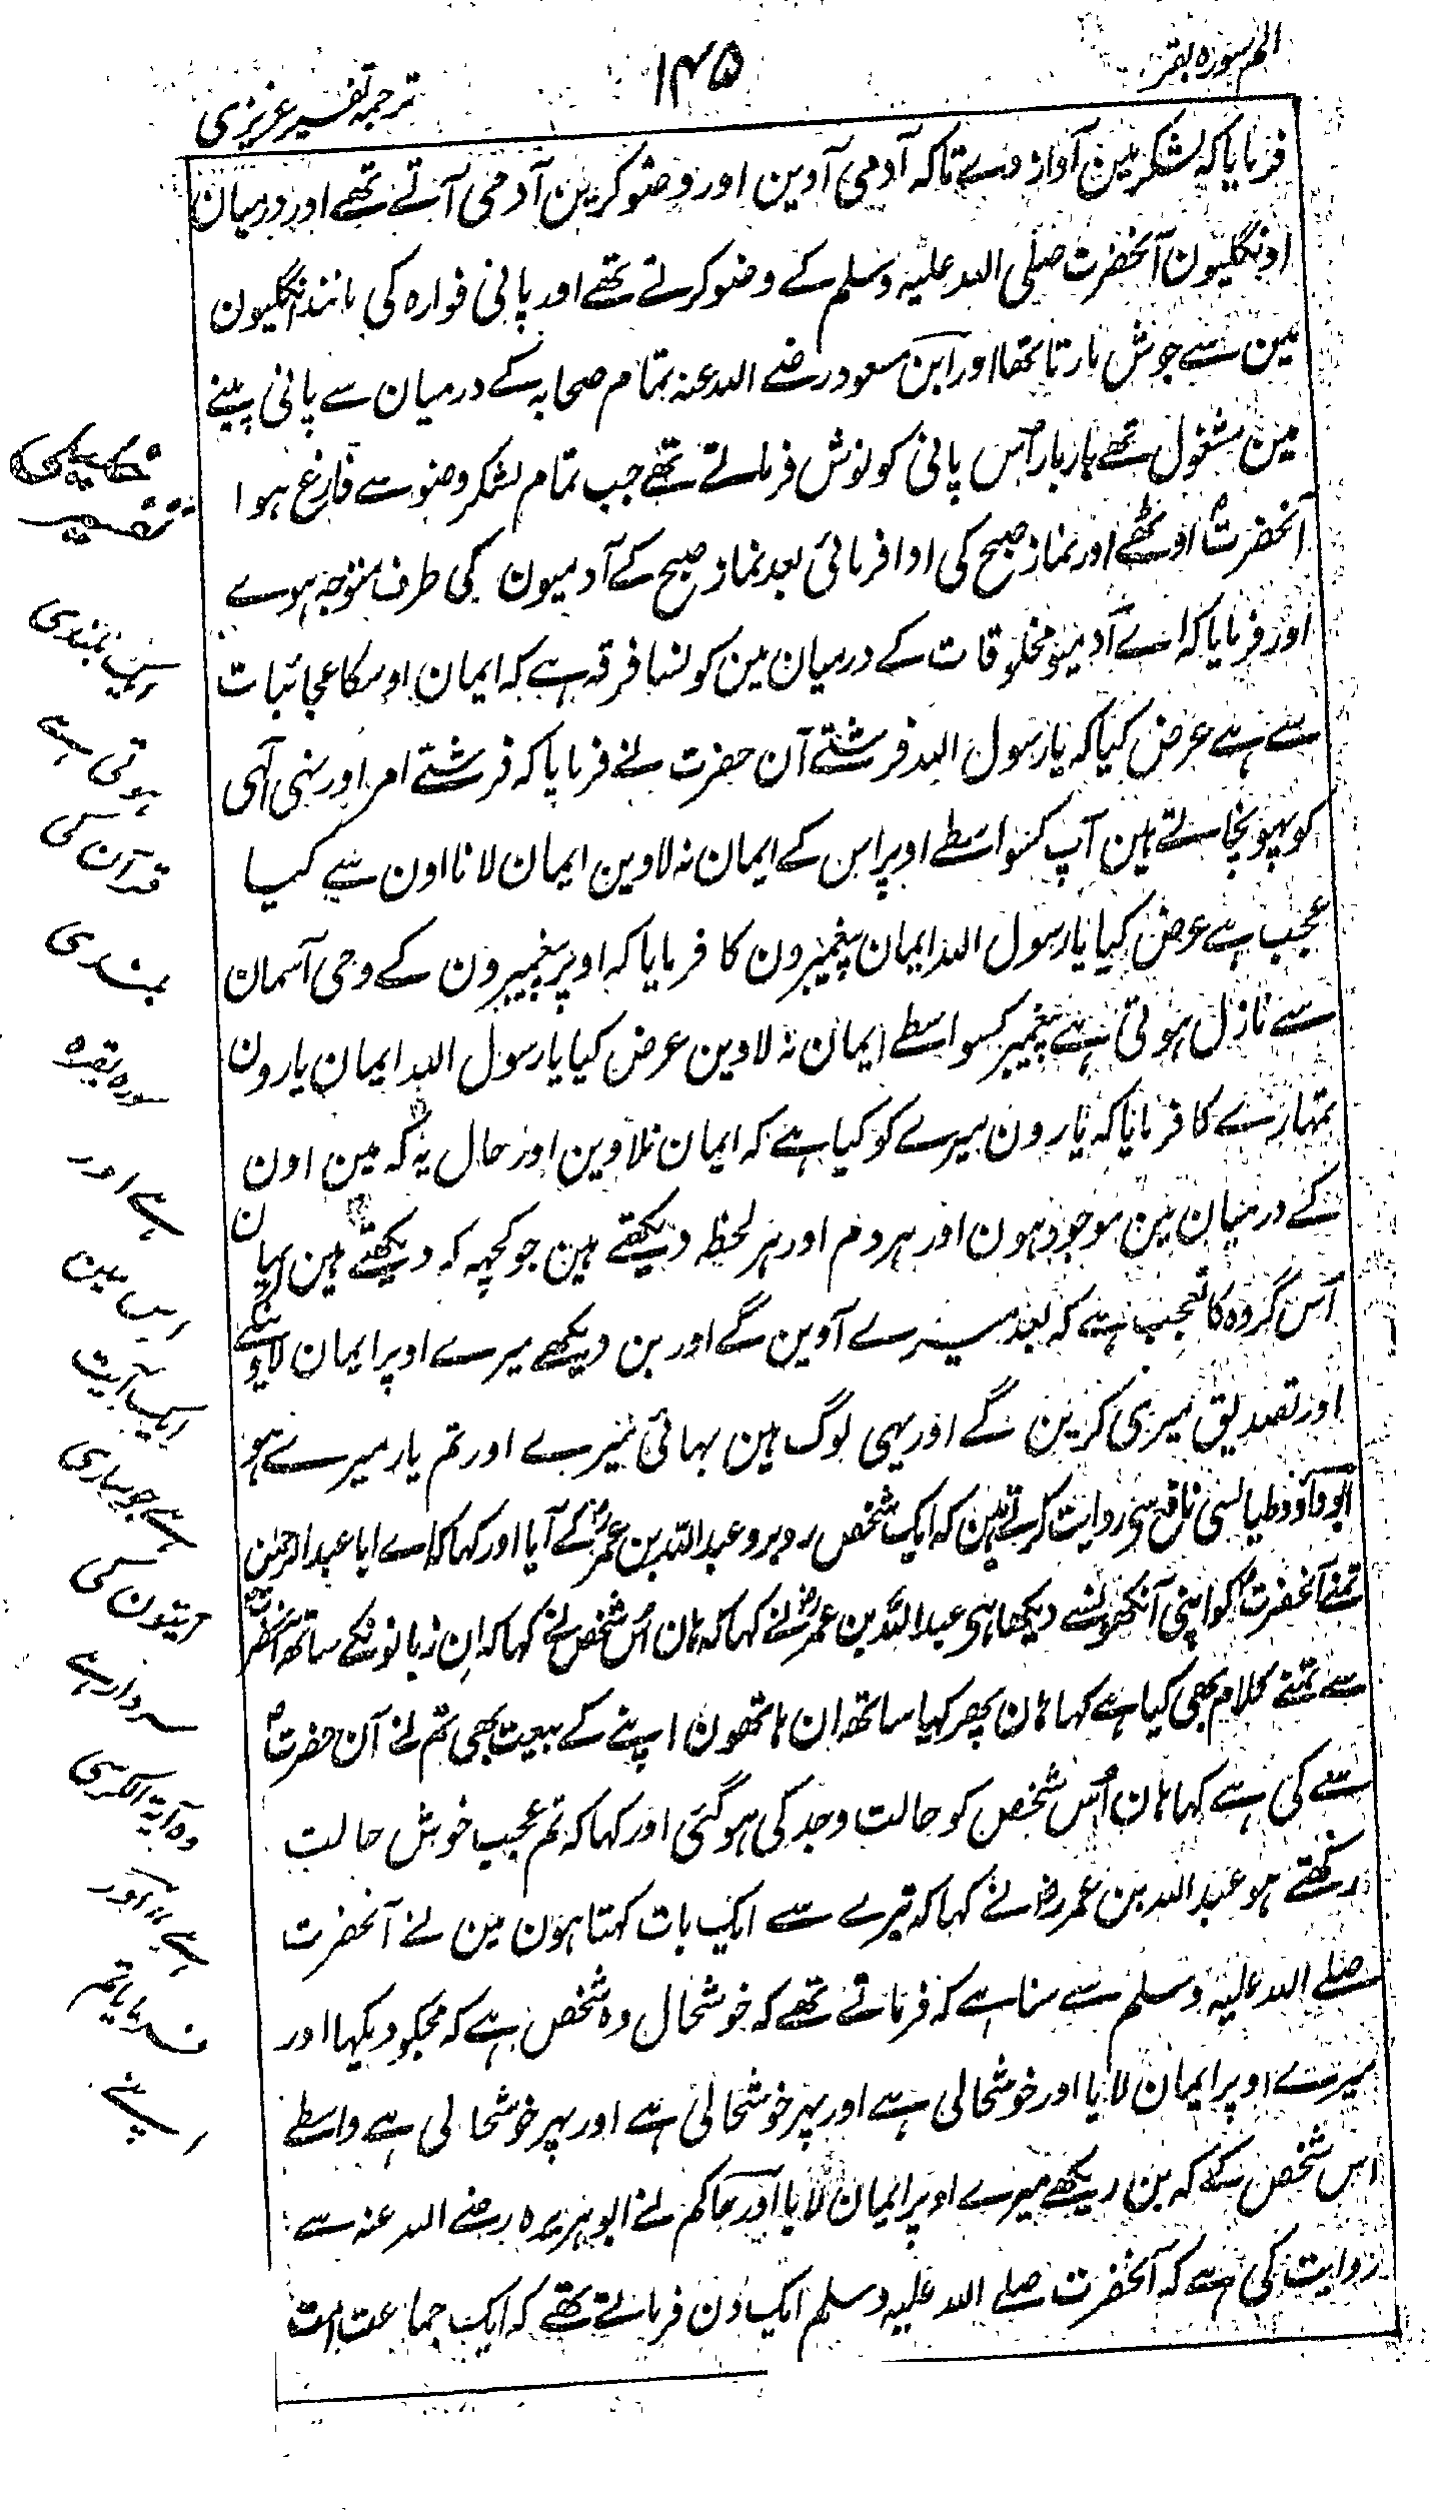 الم سورہ بقر
۱۴۵
ترجمہ تفسیر عزیزی
فرمایا کہ لشکر مین آواز دے تاکہ آدمی آوین اور وضو کرین آدمی آتے تھے اور درمیان
اونگلیون آنحضرت صلی اللہ علیہ وسلم کے وضو کرتے تھے اور پانی فوارہ کی مانند انگلیون
مین سے جوش مارتا تھا اور ابن مسعود رضے اللہ عنہ تمام صحابہ کے درمیان سے پانی پینے
مین مشغول تھے بار بار اُس پانی کو نوش فرماتے تھے جب تمام لشکر وضو سے فارغ ہوا
آنحضرتؐ اوٹھے اور نماز صبح کی ادا فرمائی بعد نماز صبح کے آدمیون کی طرف متوجہ ہوے
اور فرمایا کہ اے آدمیو مخلوقات کے درمیان مین کونسا فرقہ ہے کہ ایمان اوسکا عجائبات
سے ہے عرض کیا کہ یا رسول اللہ فرشتے آن حضرت نے فرمایا کہ فرشتے امر اور نہی الٰہی
کو پہونچاتے ہین آپ کسواسطے اوپر اس کے ایمان نہ لاوین ایمان لانا اون سے کیا
عجب ہے عرض کیا یا رسول اللہ ایمان پیغمبرون کا فرمایا کہ اوپر پیغمبرون کے وحی آسمان
سے نازل ہوتی ہے پیغمبر کسواسطے ایمان نہ لاوین عرض کیا یا رسول اللہ ایمان یارون
تمہارے کا فرمایا کہ یارون میرے کو کیا ہے کہ ایمان نلاوین اور حال یہ کہ مین اون
کے درمیان مین موجود ہون اور ہر دم اور ہر لحظہ دیکھتے ہین جو کچہہ کہ دیکھتے ہین ایمان
اُس گروہ کا تعجب ہے کہ بعد میرے آوین گے اور بن دیکھے میرے اوپر ایمان لاوینگے
اور تصدیق میری کرین گے اور یہی لوگ ہین بہائی میرے اور تم یار میرے ہو
ابو داؤد طیالسی نافع سے روایت کرتے ہین کہ ایک شخص روبرو عبد اللہ بن عمرؓ کے آیا اور کہا کہ اے ابا عبد الرحمن
تمنے آنحضرتؐ کو اپنی آنکھونسے دیکھا ہی عبد اللہ بن عمرؓ نے کہا کہ ہان اُس شخص نے کہا کہ ان زبانونکے ساتھ آنحضرتؐ
سے تمنے کلام بھی کیا ہے کہا ہان پھر کہا ساتھ ان ہاتھون اپنے کے بیعت بھی تم نے آن حضرتؐ
سے کی ہے کہا ہان اُس شخص کو حالت وجد کی ہوگئی اور کہا کہ تم عجب خوش حالت
رکھتے ہو عبد اللہ بن عمرؓ نے کہا کہ تیرے سے ایک بات کہتا ہون مین نے آنحضرت
صلے اللہ علیہ وسلم سے سنا ہے کہ فرماتے تھے کہ خوشحال وہ شخص ہے کہ مجکو دیکہا اور
میرے اوپر ایمان لایا اور خوشحالی ہے اور پہر خوشحالی ہے اور پہر خوشحالی ہے واسطے
اس شخص کے کہ بن دیکھے میرے اوپر ایمان لایا اور حاکم نے ابو ہریرہ رضے اللہ عنہ سے
روایت کی ہے کہ آنحضرت صلے اللہ علیہ وسلم ایک دن فرماتے تھے کہ ایک جماعت امت
ایک بندی
ہوتی ہے
قرآن کی
بندی
سورہ بقرہ
ہے اور
اس مین
ایک آیت
ہے جو ساری
آیتون کی
سردار ہے
وہ آیۃ الکرسی
ہے ۱۲ اور
فرمایا تمہ
اپنے